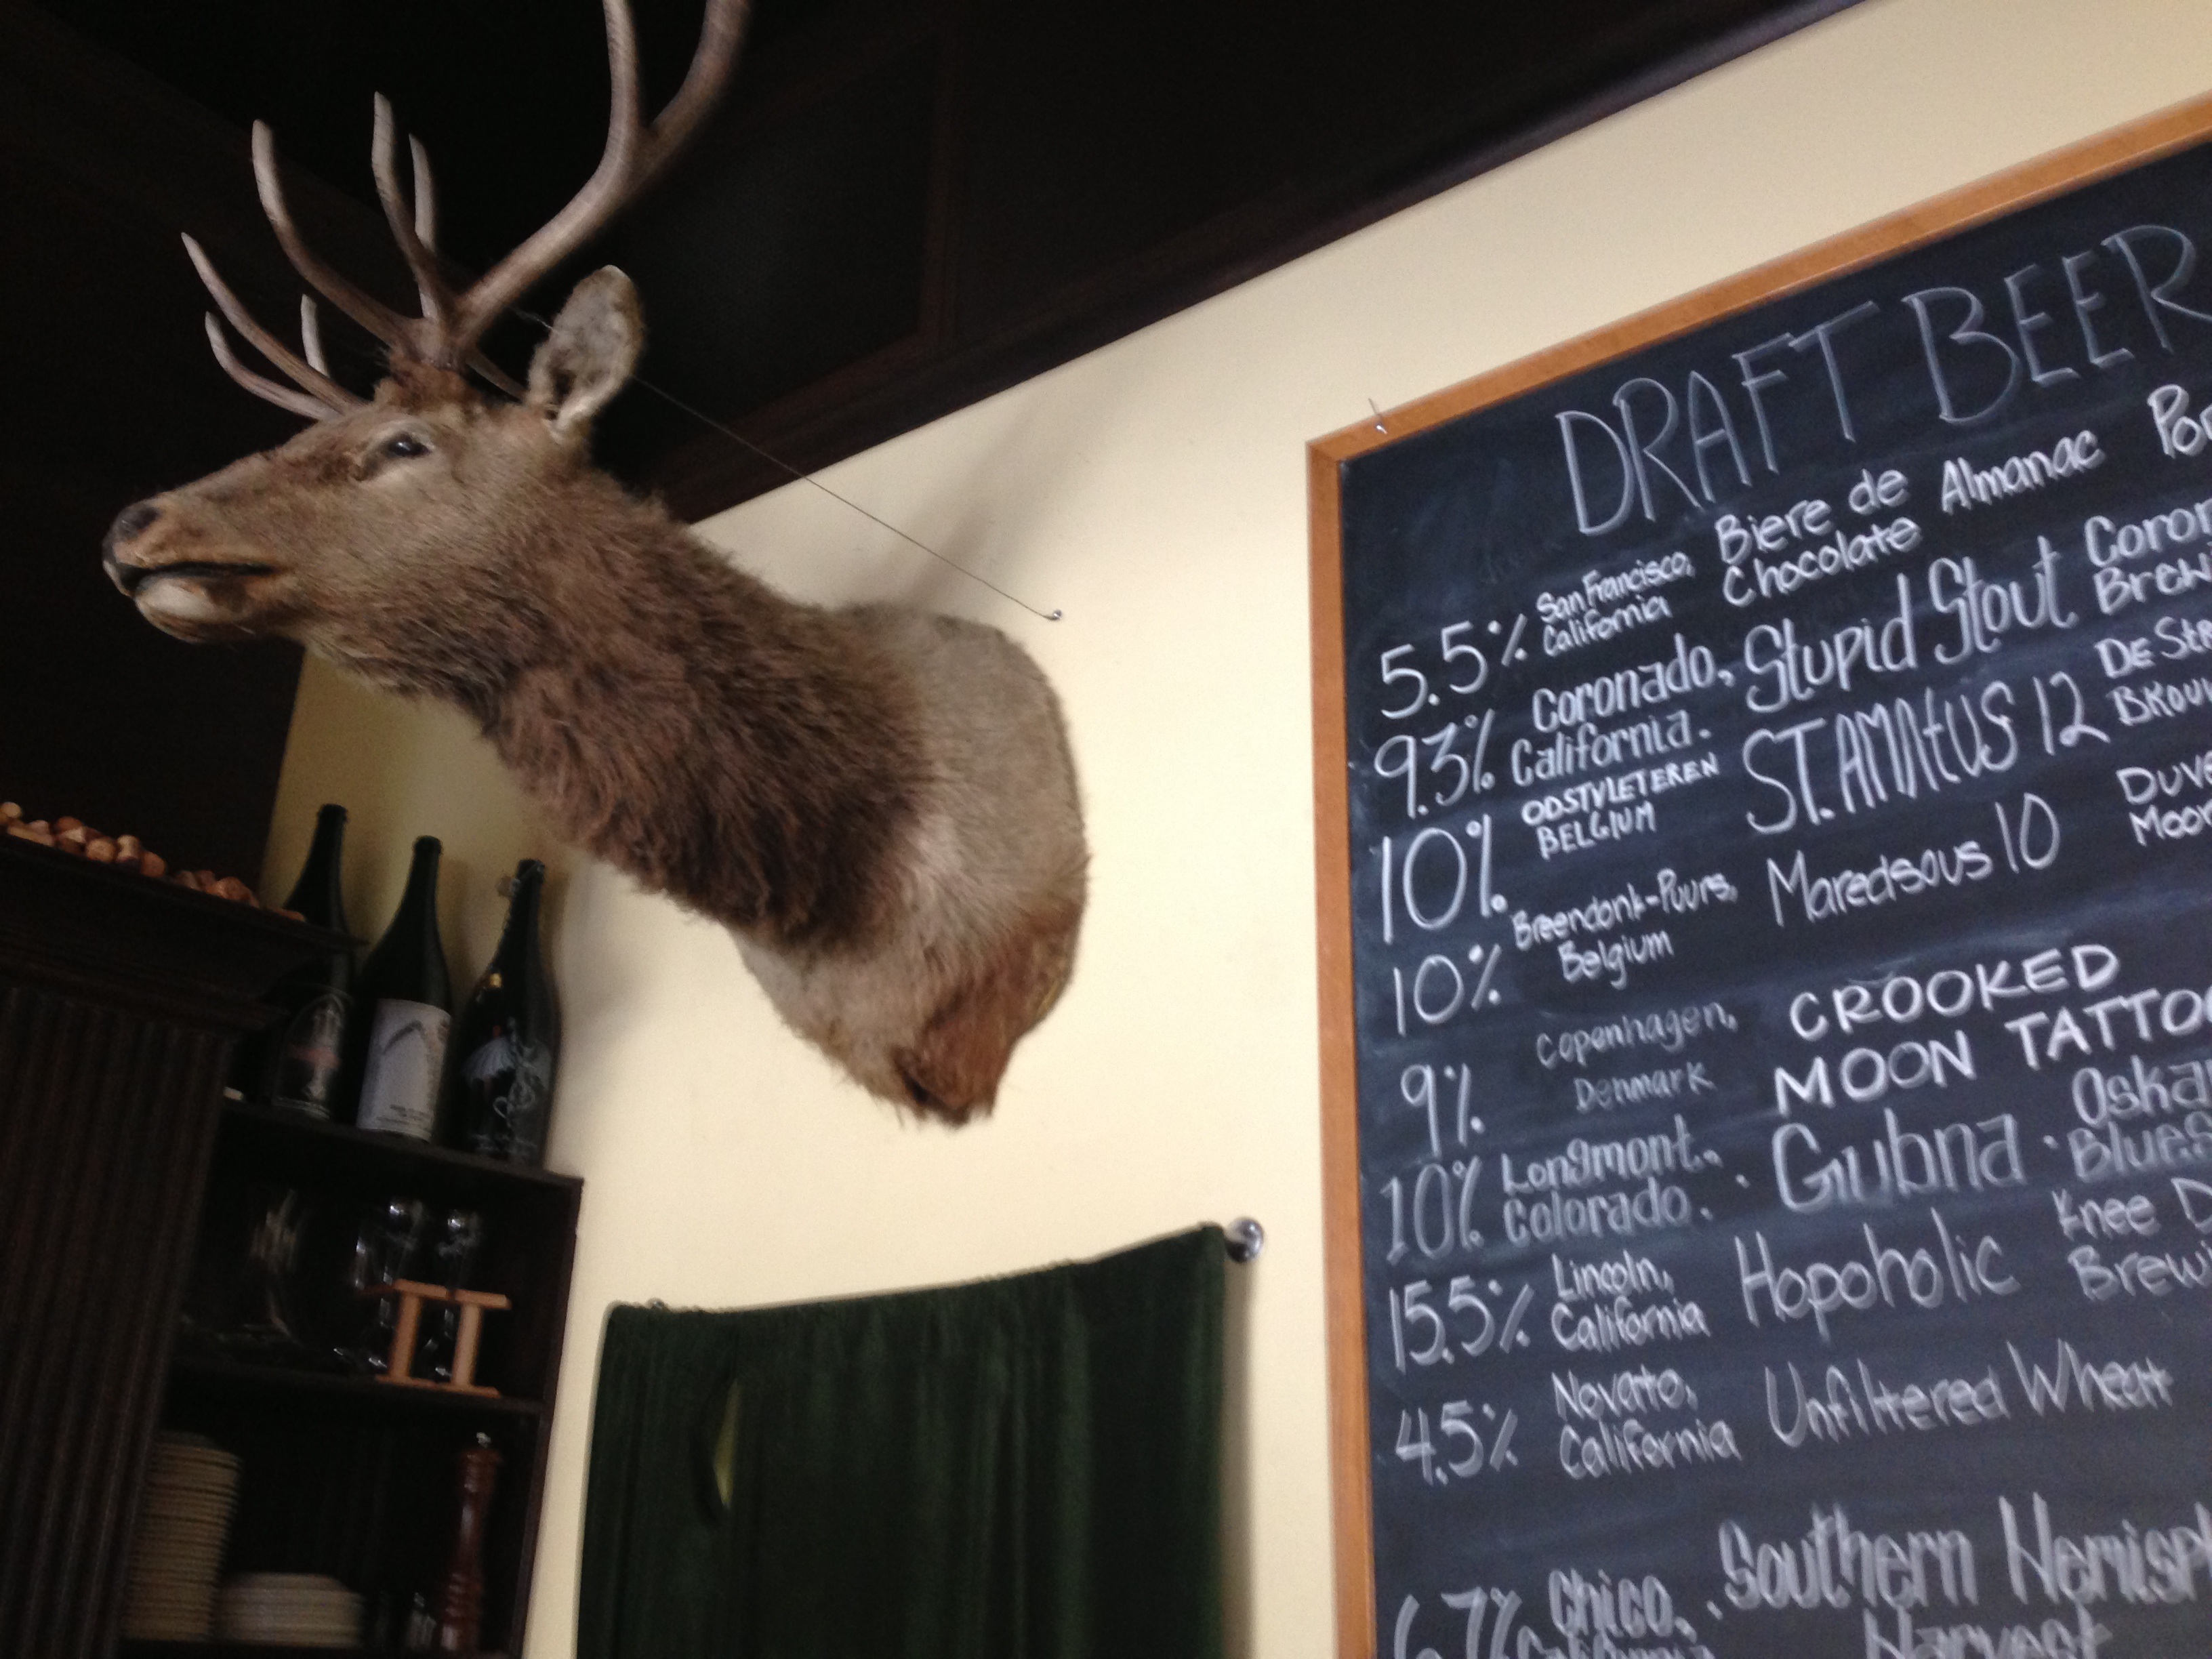 DRAFT BEER
5.5% San Francisco, California Biere de Chocolate Almanac
9.3% Coronado, California. Stupid Stout
10% ODSTVLETEREN BELGIUM ST. AMATUS 12
10% Breendonk-Puurs, Belgium Maredsous 10
9% Copenhagen, Denmark CROOKED MOON TATTOO
10% Longmont, Colorado. Gubna
15.5% Lincoln, California Hopoholic Knee
4.5% Novato, California Unfiltered Wheat
6.7% Chico, California Southern Hemisph
Harvest